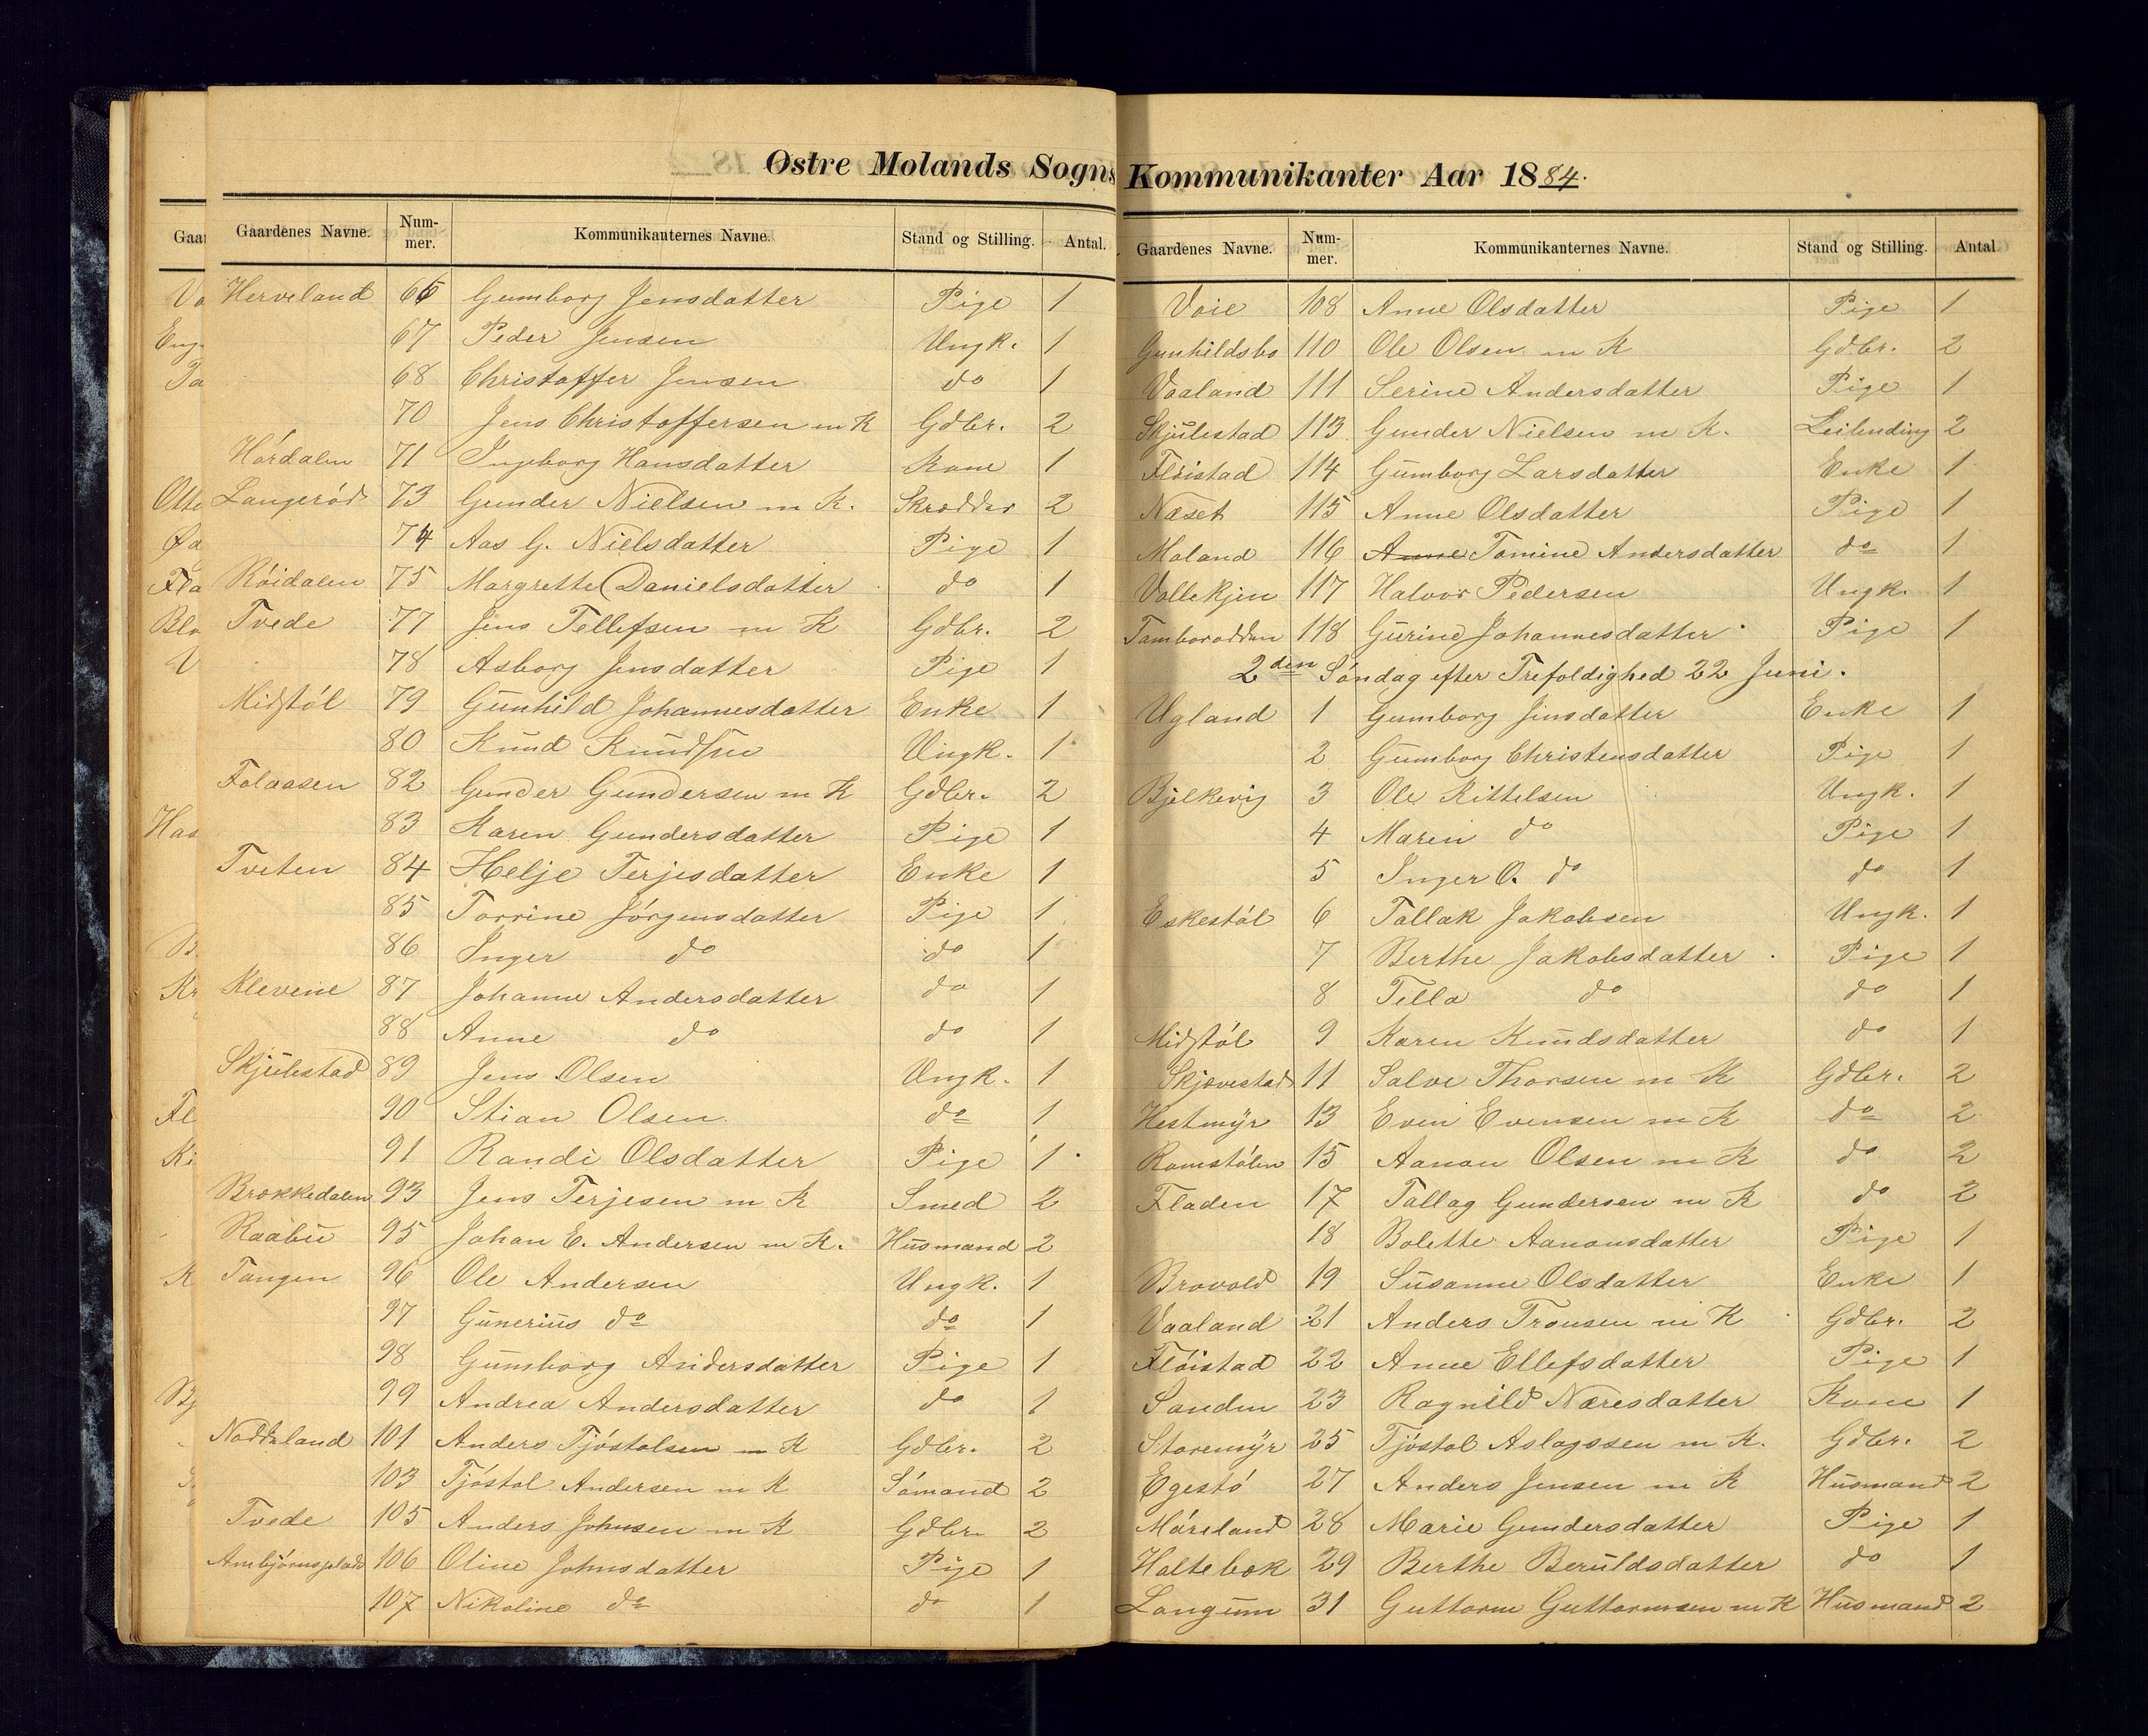 Østre Molands Sogns Kommunikanter Aar 1884.
Gaardenes Navne. Nummer. Kommunikanternes Navne. Stand og Stilling. Antal.
Herveland 66 Gumborg Jensdatter Pige 1
67 Peder Jensen Ungk. 1
68 Christoffer Jensen do 1
70 Jens Christoffersen m K Gdbr. 2
Hórdalen 71 Ingeborg Hansdatter Kone 1
Langeród 73 Gunder Nielsen m K. Skrædder 2
74 Aas G. Nielsdatter Pige 1
Róidalen 75 Margrethe Danielsdatter do 1
Tvede 77 Jens Tellefsen m K Gdbr. 2
78 Asborg Jensdatter Pige 1
Midstól 79 Gunhild Johannesdatter Enke 1
80 Knud Knudsen Ungk. 1
Folaasen 82 Gunder Gundersen m K Gdbr. 2
83 Karen Gundersdatter Pige 1
Tveten 84 Helje Terjesdatter Enke 1
85 Torrine Jórgensdatter Pige 1
86 Inger do do 1
Klevene 87 Johanne Andersdatter do 1
88 Anne do do 1
Skjulestad 89 Jens Olsen Ungk. 1
90 Stian Olsen do 1
91 Randi Olsdatter Pige 1
Brækkedalen 93 Jens Terjesen m K Smed 2
Raabu 95 Johan E. Andersen m K. Husmand 2
Tangen 96 Ole Andersen Ungk. 1
97 Gunerius do do 1
98 Gumborg Andersdatter Pige 1
99 Andrea Andersdatter do 1
Noddeland 101 Anders Tjóstolsen m K Gdbr. 2
103 Tjóstol Andersen m K Sómand 2
Tvede 105 Anders Johnsen m K Gdbr. 2
Ambjórnsplads 106 Oline Johnsdatter Pige 1
107 Nikoline do do 1
Gaardenes Navne. Nummer. Kommunikanternes Navne. Stand og Stilling. Antal.
Voie 108 Anne Olsdatter Pige 1
Gunhildsbo 110 Ole Olsen m K Gdbr. 2
Vaaland 111 Serine Andersdatter Pige 1
Skjulestad 113 Gunder Nielsen m K. Leilending 2
Flóistad 114 Gumborg Larsdatter Enke 1
Næset 115 Anne Olsdatter Pige 1
Moland 116 Anne Tomine Andersdatter do 1
Vollekjen 117 Halvor Pedersen Ungk. 1
Tamborodden 118 Gurine Johannesdatter Pige 1
2den Sóndag efter Trefoldighed 22 Juni.
Ugland 1 Gumborg Jensdatter Enke 1
2 Gumborg Christensdatter Pige 1
Bjelkevig 3 Ole Kittelsen Ungk. 1
4 Maren do Pige 1
5 Inger O. do do 1
Eskestól 6 Tallak Jakobsen Ungk. 1
7 Berthe Jakobsdatter Pige 1
8 Tella do do 1
Midstól 9 Karen Knudsdatter do 1
Skjævestad 11 Salve Thorsen m K Gdbr. 2
Hestmyr 13 Even Evensen m K do 2
Romstólen 15 Aanon Olsen m K do 2
Fladen 17 Tallag Gundersen m K do 2
18 Bolette Aanonsdatter Pige 1
Brovold 19 Susanne Olsdatter Enke 1
Vaaland 21 Anders Tronsen m K Gdbr. 2
Flóistad 22 Anne Ellefsdatter Pige 1
Sanden 23 Ragnild Næresdatter Kone 1
Storemyr 25 Tjóstol Aslagssen m K. Gdbr. 2
Egestó 27 Anders Jensen m K Husmand 2
Móreland 28 Marie Gundersdatter Pige 1
Holtebæk 29 Berthe Beruldsdatter do 1
Langum 31 Guttorm Guttormsen m K Husmand 2